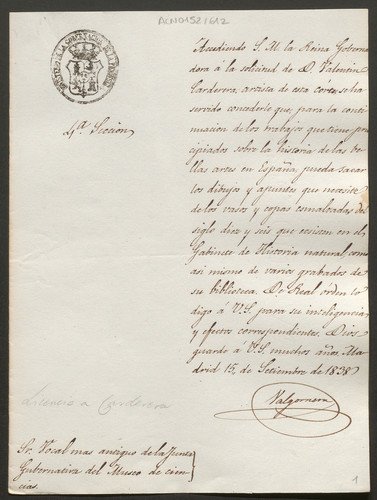 ACN0152/612
MINISTERIO DE LA GOBERNACION DE LA PENINSULA
4.ª Seccion
Accediendo S. M. la Reina Goberna
dora á la solicitud de D. Valentin
Carderera, artista de esta corte, se ha
servido concederle que, para la conti
nuacion de los trabajos que tiene prin
cipiados sobre la historia de las be
llas artes en España, pueda sacar
los dibujos y apuntes que necesite
de los vasos y copas esmaltadas del
siglo diez y seis que ecsisten en el
Gabinete de Historia natural, como
asi mismo de varios grabados de
su biblioteca. De Real órden lo
digo á V.S. para su inteligencia
y efectos correspondientes. Dios
guarde á V.S. muchos años. Ma
drid 15, de Setiembre de 1838.
Valgornera
Licencia a Carderera
Sr. Vocal mas antiguo de la Junta
Gubernativa del Museo de cien
cias
1